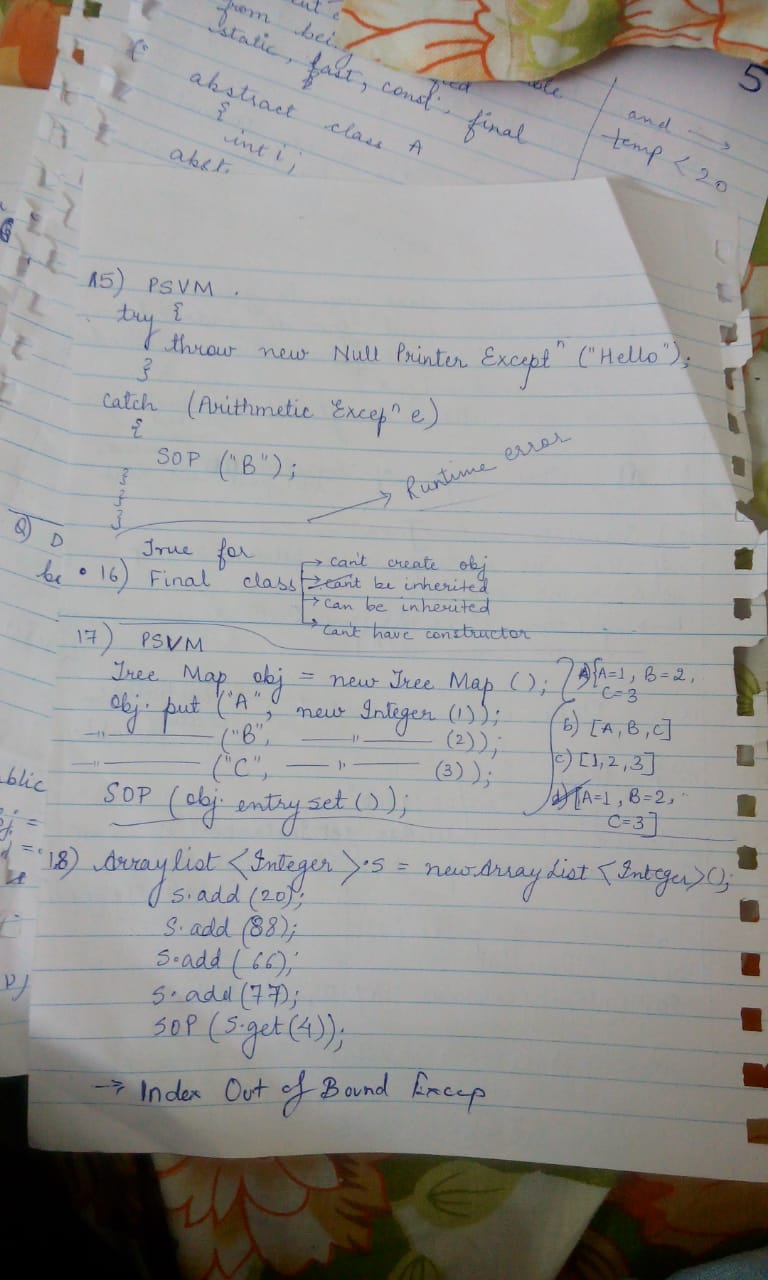 from bei
static, fast, const, final
abstract class A
{
int i;
abst.
5
and →
temp < 20
15) PSVM .
try {
throw new Null Printer Exceptⁿ ("Hello");
}
catch (Arithmetic Excepⁿ e)
{
SOP ("B");
}
}
}
→ Runtime error
Q) D
be
True for
16) Final class → can't create obj
→ can't be inherited
→ can be inherited
→ can't have constructor
17) PSVM
Tree Map obj = new Tree Map ();
obj. put ("A", new Integer (1));
—"— ("B", —"— (2));
—"— ("C", —"— (3));
SOP (obj. entry set ());
A) {A=1, B=2,
C=3
b) [A, B, C]
c) [1, 2, 3]
d) [A=1, B=2,
C=3]
blic
18) Arraylist <Integer> s = new Array List <Integer>();
s.add (20);
s.add (88);
s.add (66);
s.add (77);
SOP (s.get(4));
→ Index Out of Bound Excep